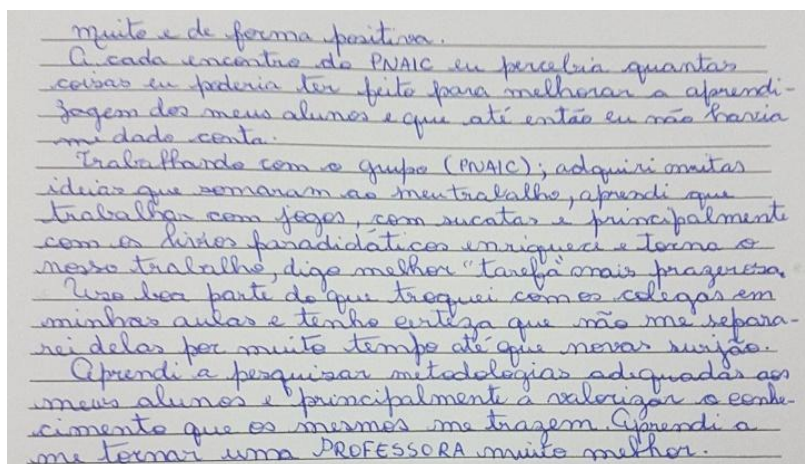 muito e de forma positiva.
A cada encontro do PNAIC eu percebia quantas
coisas eu poderia ter feito para melhorar a aprendi-
zagem dos meus alunos e que até então eu não havia
me dado conta.
Trabalhando com o grupo (PNAIC); adquiri muitas
ideias que somaram ao meu trabalho, aprendi que
trabalhar com jogos, com sucatas e principalmente
com os livros paradidáticos enriqueci e torna o
nosso trabalho, digo melhor "tarefa" mais prazerosa.
Uso boa parte do que troquei com os colegas em
minhas aulas e tenho certeza que não me separa-
rei delas por muito tempo até que novas surjão.
Aprendi a pesquisar metodologias adequadas aos
meus alunos e principalmente a valorizar o conhe-
cimento que os mesmos me trazem. Aprendi a
me tornar uma PROFESSORA muito melhor.